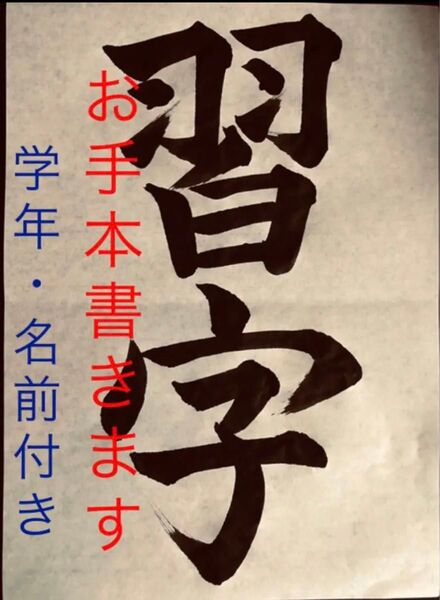 習字
お手本書きます
学年・名前付き